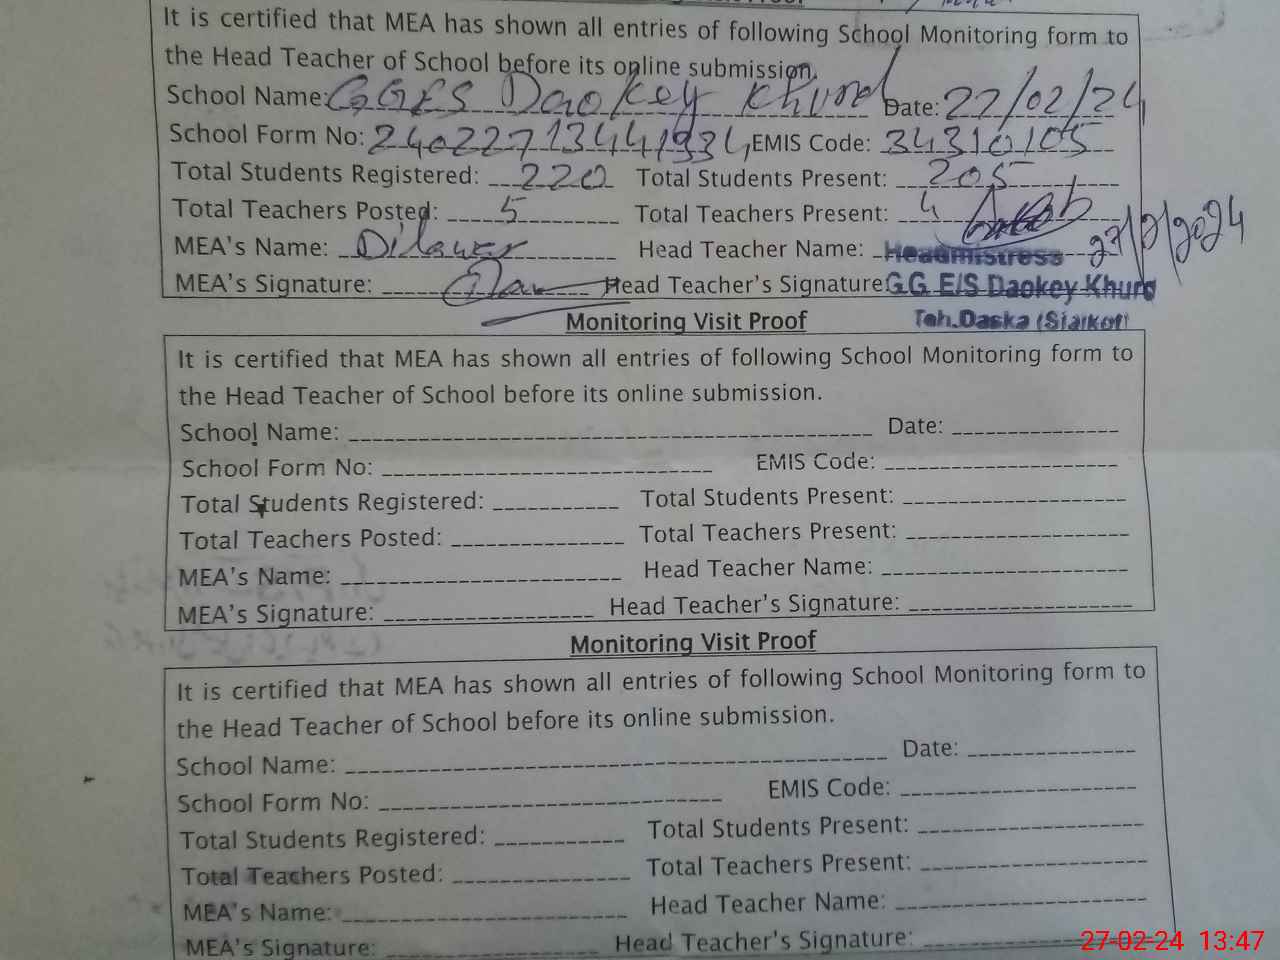 It is certified that MEA has shown all entries of following School Monitoring form to
the Head Teacher of School before its online submission.
School Name: GGES Daokey Khurd Date: 27/02/24
School Form No: 24022713441934 EMIS Code: 34310105
Total Students Registered: 220 Total Students Present: 205
Total Teachers Posted: 5 Total Teachers Present: 4
MEA's Name: Dilawer Head Teacher Name: Headmistress 27/2/2024
MEA's Signature: Head Teacher's Signature: G.G E/S Daokey Khurd
Teh.Daska (Sialkot)
Monitoring Visit Proof
It is certified that MEA has shown all entries of following School Monitoring form to
the Head Teacher of School before its online submission.
School Name: Date:
School Form No: EMIS Code:
Total Students Registered: Total Students Present:
Total Teachers Posted: Total Teachers Present:
MEA's Name: Head Teacher Name:
MEA's Signature: Head Teacher's Signature:
Monitoring Visit Proof
It is certified that MEA has shown all entries of following School Monitoring form to
the Head Teacher of School before its online submission.
School Name: Date:
School Form No: EMIS Code:
Total Students Registered: Total Students Present:
Total Teachers Posted: Total Teachers Present:
MEA's Name: Head Teacher Name:
MEA's Signature: Head Teacher's Signature:
27-02-24 13:47